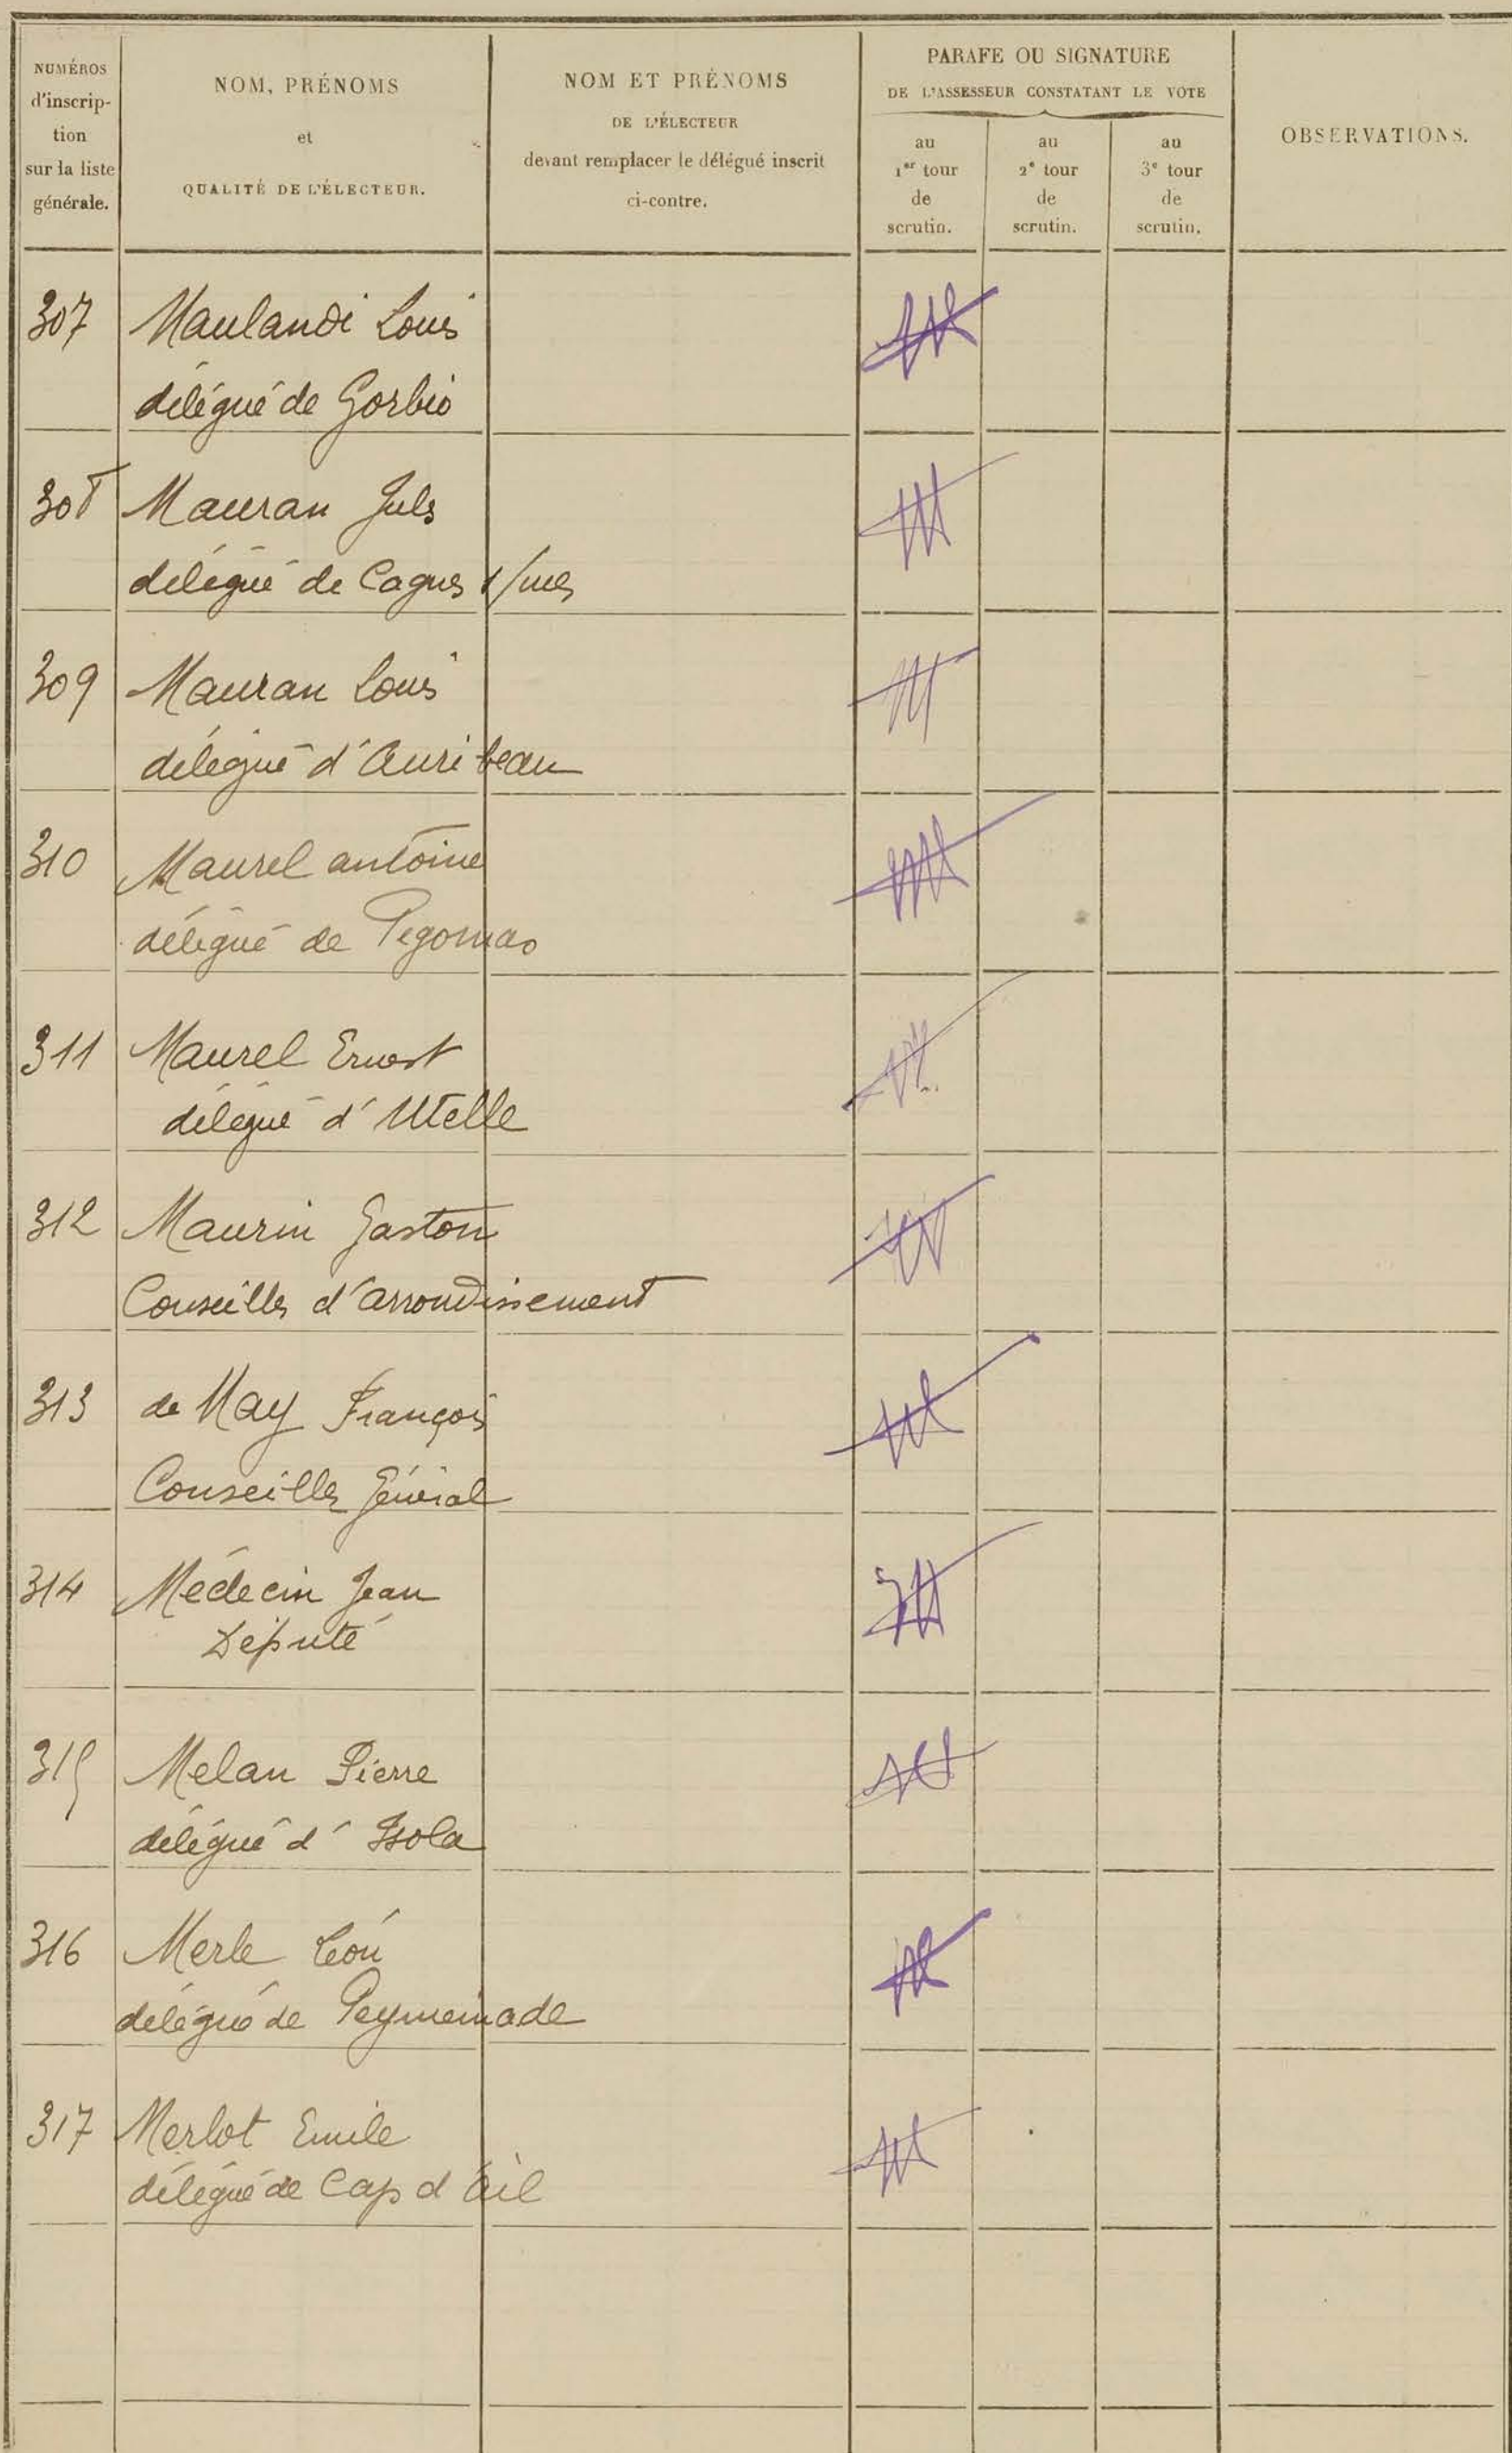 NUMÉROS
d'inscrip-
tion
sur la liste
générale.
NOM, PRÉNOMS
et
QUALITÉ DE L'ÉLECTEUR.
NOM ET PRÉNOMS
DE L'ÉLECTEUR
devant remplacer le délégué inscrit
ci-contre.
PARAFE OU SIGNATURE
DE L'ASSESSEUR CONSTATANT LE VOTE
au
1er tour
de
scrutin.
au
2e tour
de
scrutin.
au
3e tour
de
scrutin.
OBSERVATIONS.
307 Maulandi Louis
délégué de Gorbio
308 Mauran Jules
délégué de Cagnes s/mer
309 Mauran Louis
délégué d'Auribeau
310 Maurel antoine
délégué de Pegomas
311 Maurel Ernest
délégué d'Utelle
312 Maurin Gaston
Conseiller d'arrondissement
313 de May François
Conseiller Général
314 Médecin Jean
Député
315 Melan Pierre
délégué d'Isola
316 Merle Léon
délégué de Peymeinade
317 Merlot Emile
délégué de Cap d'ail